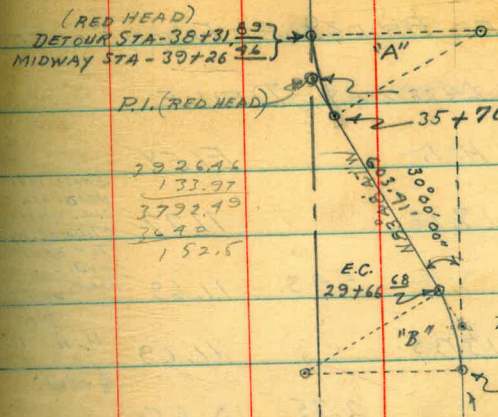 (RED HEAD)
DETOUR STA-38+31.89
MIDWAY STA-39+26.46
"A"
P.I. (RED HEAD)
35+70
3926.46
133.97
3792.49
3640
152.5
603.41'
30°00'00"
E.C.
29+66.68
"B"